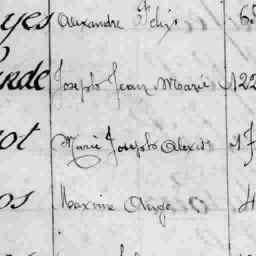 yes Alexandre Félix 6.5
rde Joseph Jean Marie 122
ot Marie Joseph Alexis 1
os Maxime Ange 4